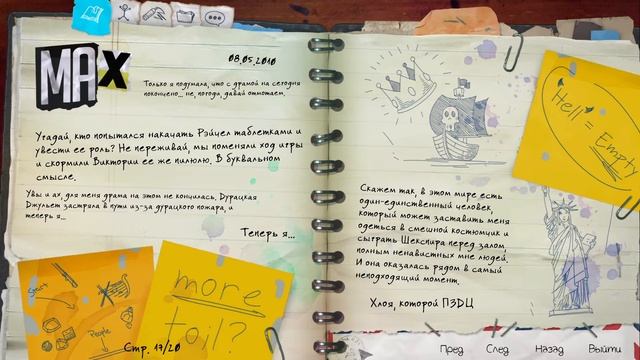 MAX
08.05.2010
Только я подумала, что с драмой на сегодня
покончено... не, погоди, давай отмотаем.
Угадай, кто попытался накачать Рэйчел таблетками и
увести ее роль? Не переживай, мы поменяли ход игры
и скормили Виктории ее же пилюлю. В буквальном
смысле.
Увы и ах, для меня драма на этом не кончилась. Дурацкая
Джульет застряла в пути из-за дурацкого пожара, и
теперь я...
Теперь я...
People
more
toil?
Стр. 17/20
Hell =
Empty
Скажем так, в этом мире есть
один-единственный человек,
который может заставить меня
одеться в смешной костюмчик и
сыграть Шекспира перед залом,
полным ненавистных мне людей.
И она оказалась рядом в самый
неподходящий момент.
Хлоя, которой ПЗДЦ
Пред
След
Назад
Выйти